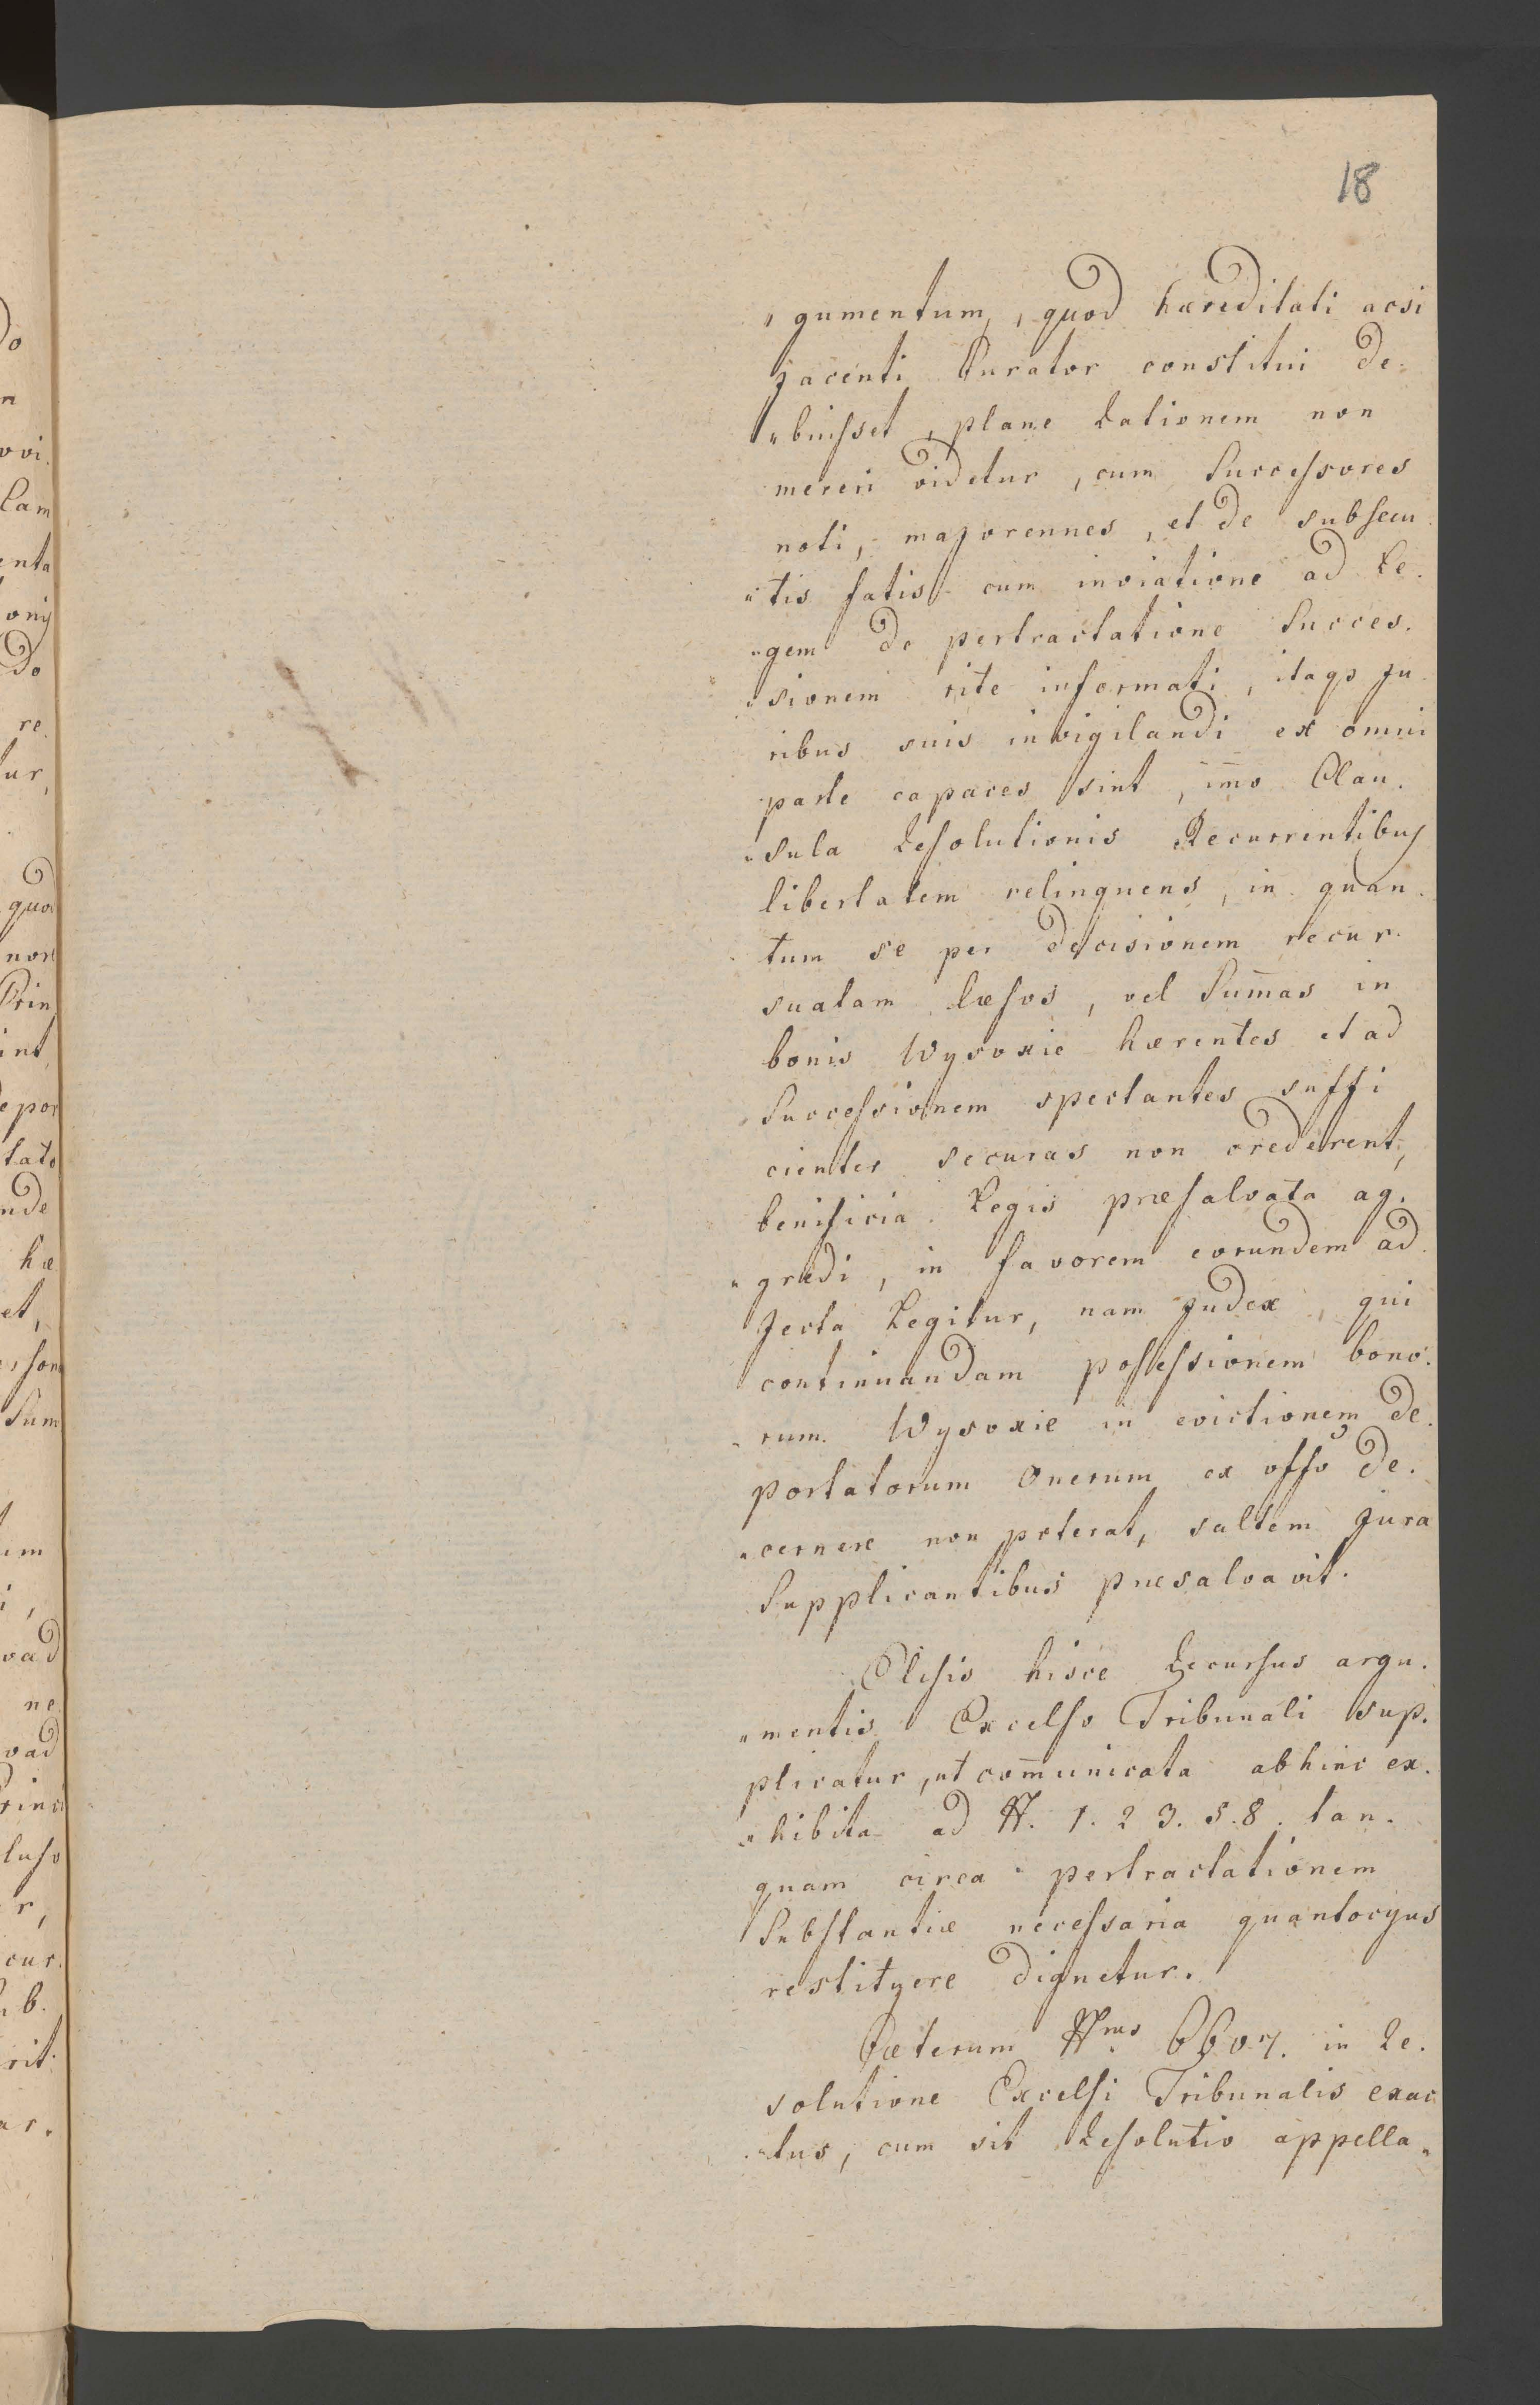 18
„gumentum, quod hæreditati acsi
jacenti Curator constitui de-
„buisset, plane Rationem non
mereri videtur, cum Successores
noti, majorennes, et de subsecu-
„tis fatis cum inviatione ad Re-
„gem de pertractatione Succes-
„sionem rite informati, itaqs ju-
ribus suis invigilandi ex omni
parte capaces sint, im̄o Clau-
„sula Resolutionis Recurrentibus
libertatem relinquens, in quan-
tum se per decisionem recur-
suatam læsos, vel Sum̄as in
bonis Wysoxie hærentes et ad
Successionem spectantes suffi
cienter securas non crederent,
benificia Legis præsalvata ag-
„gredi, in favorem eorundem ad-
jecta Legitur, nam judex, qui
continuandam possessionem bono-
„rum Wysoxie in evictionem de-
portatorum onerum ex offo de-
„cernere non poterat, saltem jura
Supplicantibus præsalvavit.
Elisis hisce Recursus argu-
„mentis Excelso Tribunali sup-
plicatur, ut com̄unicata abhinc ex-
„hibita ad N. 1. 2 3. 5. 8. tan-
quam circa pertractationem
Substantiæ necessaria quantocyus
restituere dignetur.
Cæterum Nrus in Re-
solutione Excelsi Tribunalis exac
„tus, cum sit Resolutio appella„